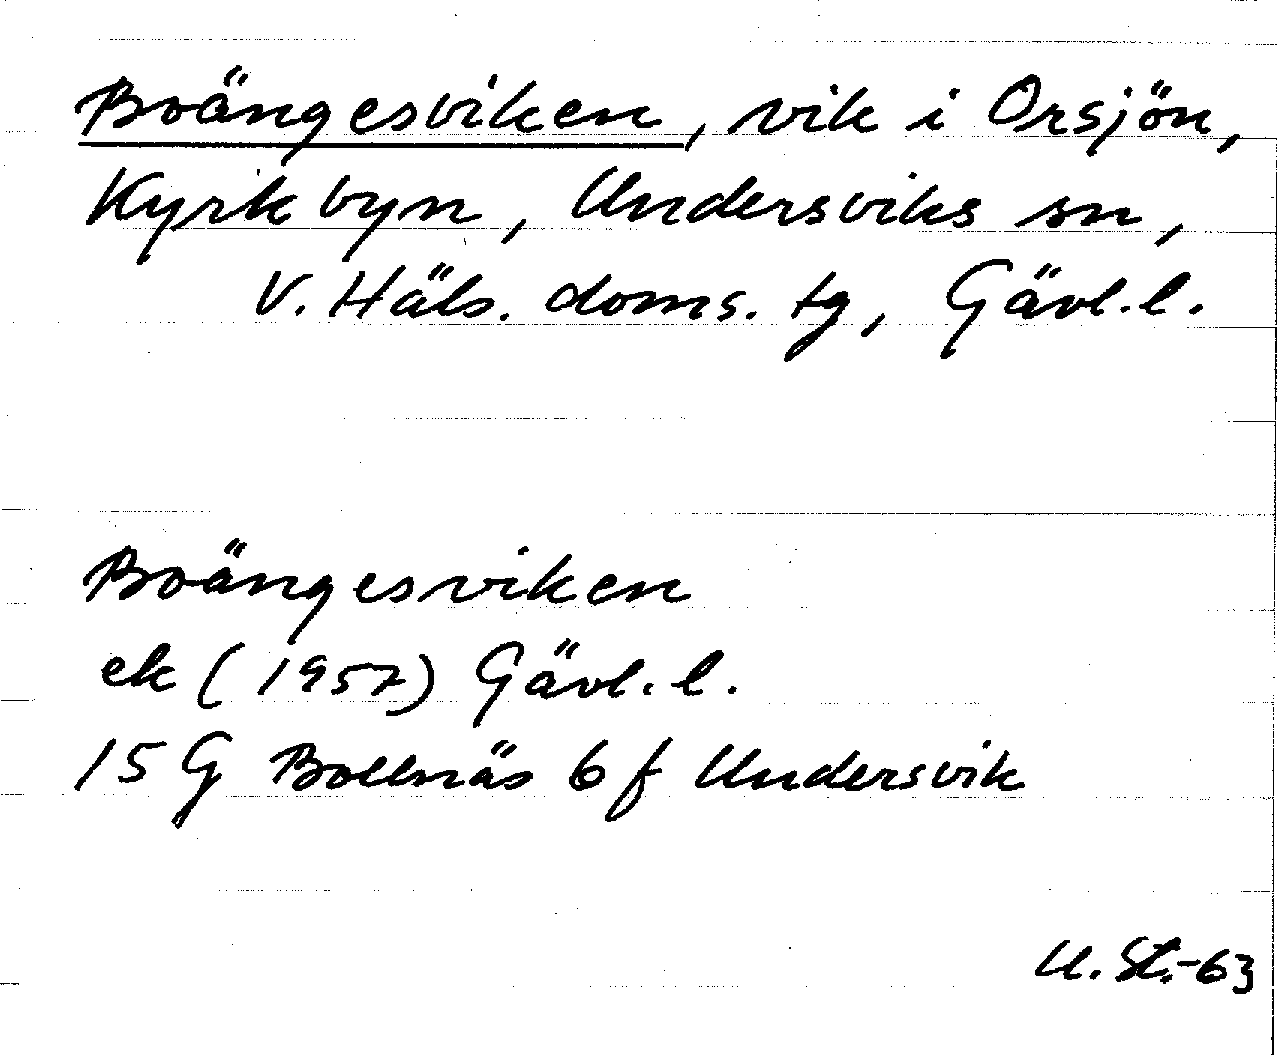 Boängesviken, vik i Orsjön,
Kyrkbyn, Undersviks sn,
V. Häls. doms. tg, Gävl. l.
Boängesviken
ek (1957) Gävl. l.
15 G Bollnäs 6 f Undersvik
U. St. -63